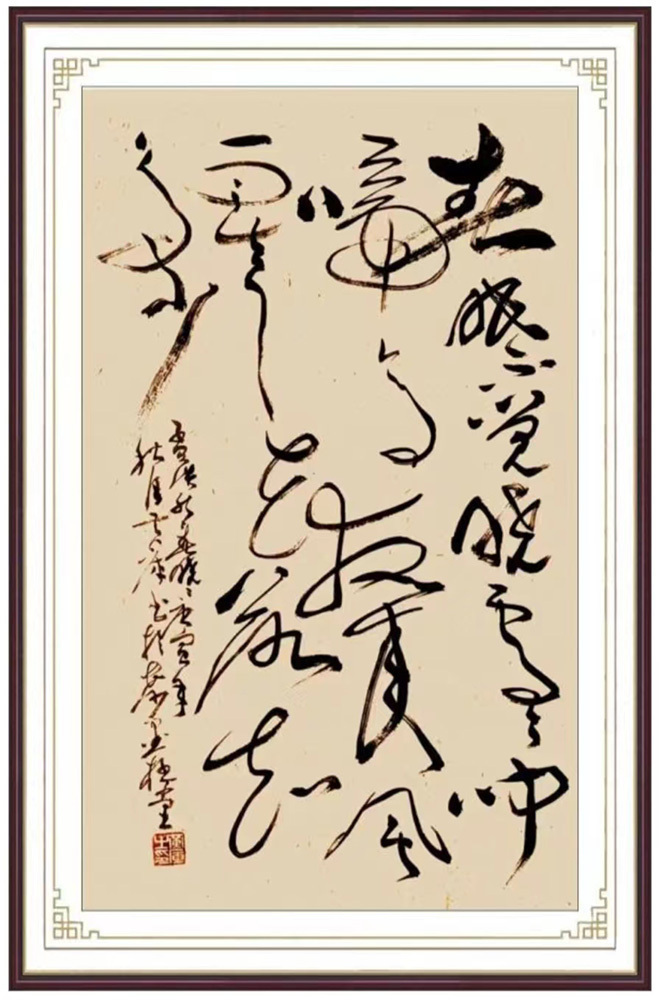 春眠不觉晓处々闻
啼鸟夜来风
雨声花落知
多少
孟浩然春晓庚寅年
秋月书于墨堂